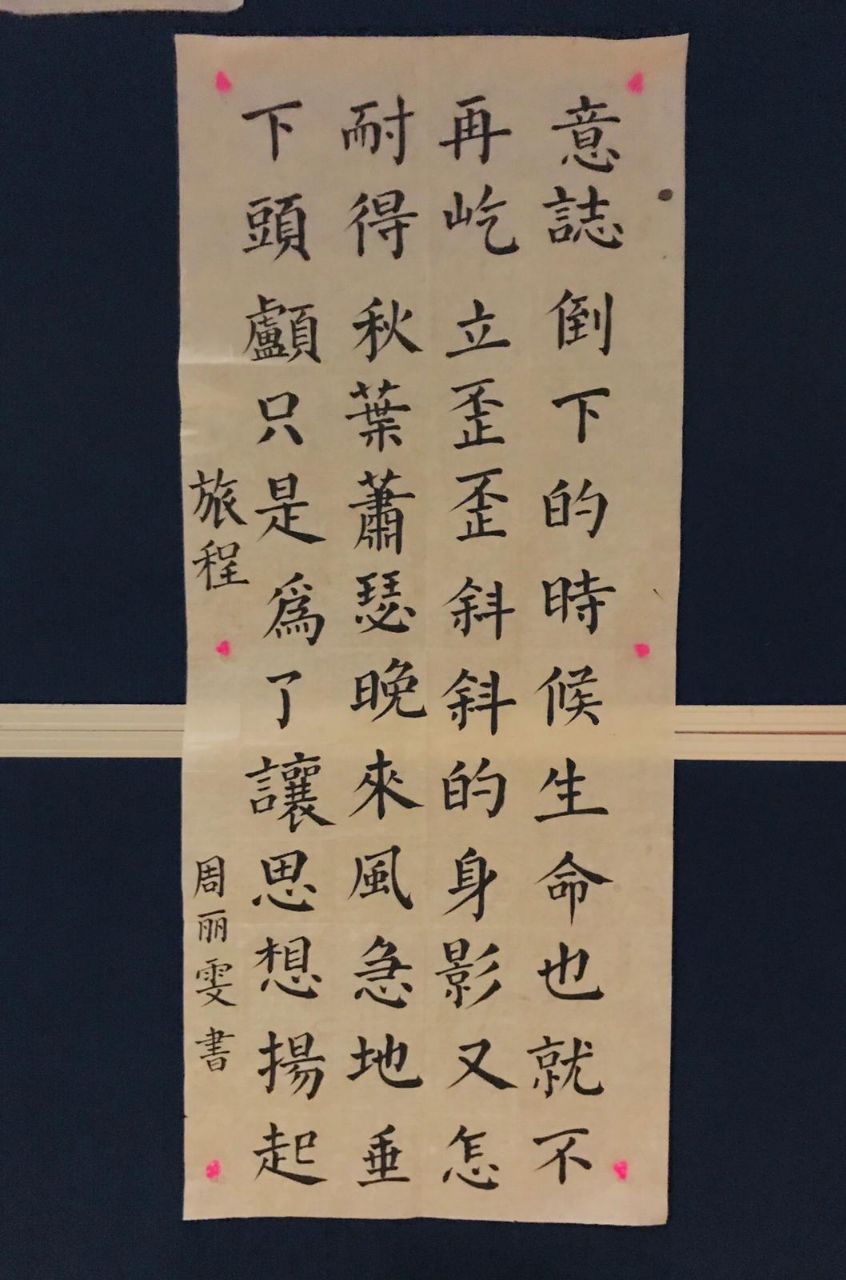 意誌倒下的時候生命也就不
再屹立歪歪斜斜的身影又怎
耐得秋葉蕭瑟晚來風急地垂
下頭顱只是爲了讓思想揚起
旅程
周丽雯書